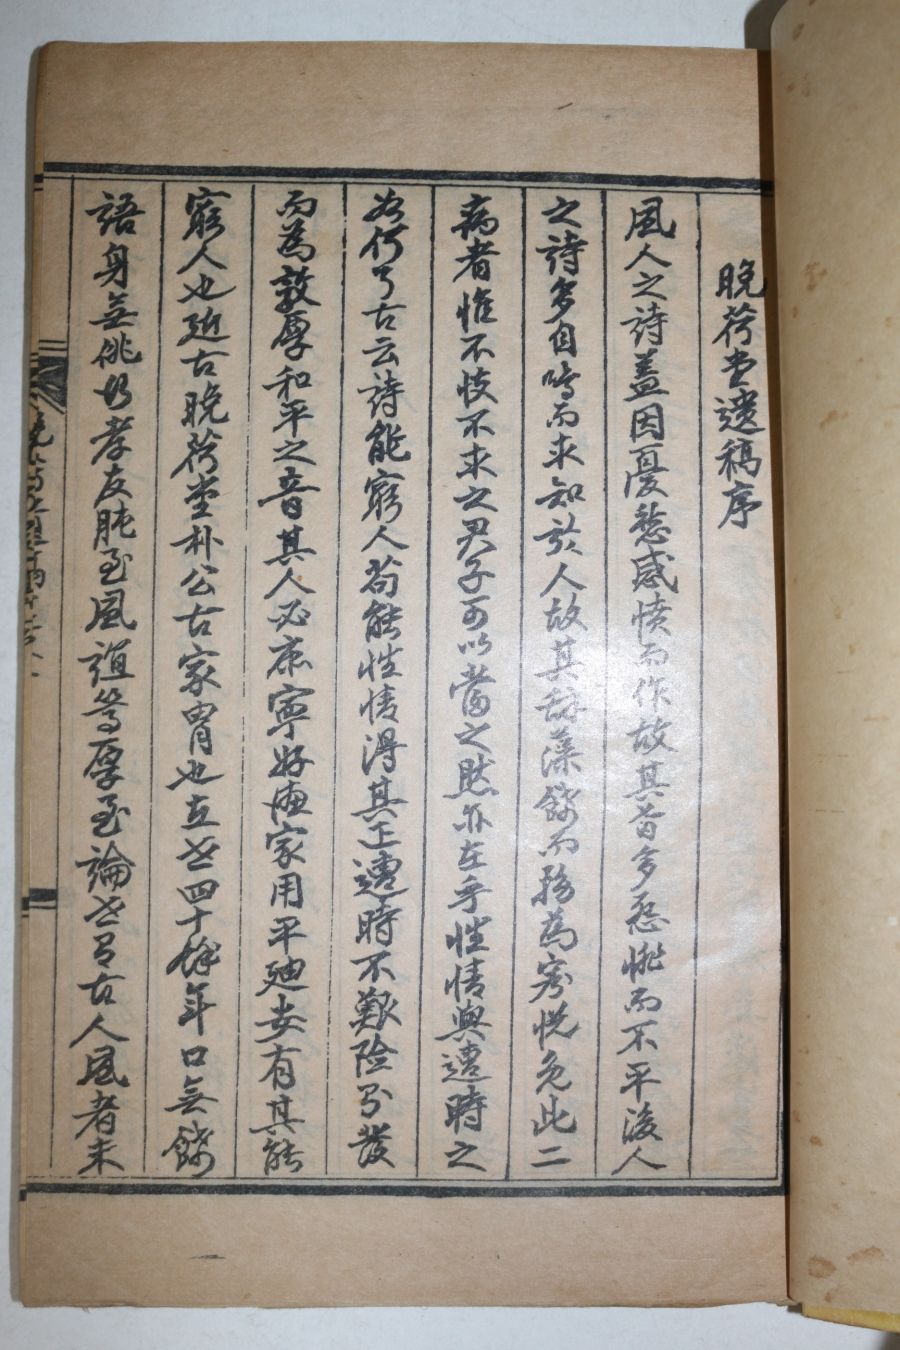 晩荷堂遺稿序
風人之詩盖因憂愁感憤而作故其音多怨悱而不平後人
之詩多自鳴而求知於人故其辞藻餙而務為容悦免此二
病者惟不忮不求之君子可以當之然亦在乎性情與遭時之
如何了古云詩能窮人苟能性情得其正遭時不艱险則發
而為敦厚和平之音其人必康寧好德家用平廸安有其能
窮人也近古晩荷堂朴公古家胄也立世四十餘年口無餙
語身無佻行孝友肫至風謳篤厚至論世有古人風者未